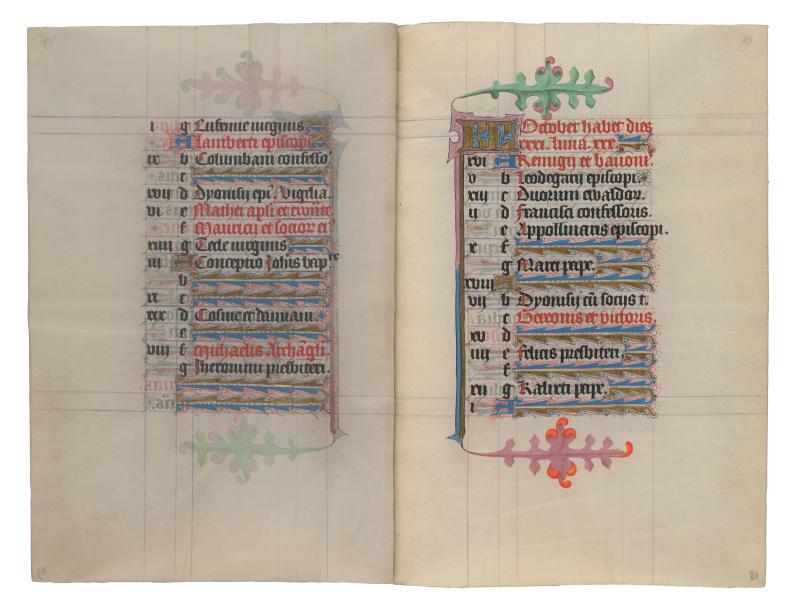 i g Eufemie virginis.
A Lamberti episcopi.
ix b Columbani confesso
c
xvij d Dyonisij epi. Vigilia.
vi e Mathei apli et ewāte.
f Mauricij et socior eiᵒ
xiiij g Tecle virginis
iij A Conceptio Johis bap
b
xi c
xix d Cosme et damiani.
e
viij f Michaelis Archāgli.
g Jheronimi presbiteri.
KL October habet dies
xxxi. luna. xxx.
xvi A Remigij et bavoni.
v b Leodegarij episcopi.
xiij c Duorum ewaldor.
ij d Francisci confessoris.
e Appollinaris episcopi.
x f
g Marci pape.
xviij A
vij b Dyonisij cū socijs s.
c Gereonis et victoris.
xv d
iiij e Felicis presbiteri.
f
xij g Kalixti pape.
i A